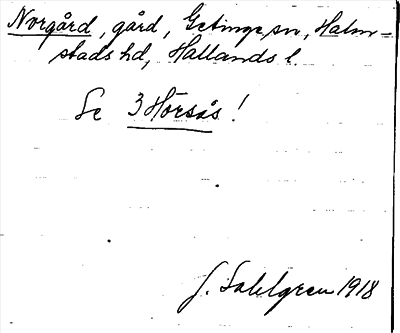 Norgård, gård, Getinge sn, Halm-
stads hd, Hallands l.
Se 3 Hörsås!
J. Sahlgren 1918